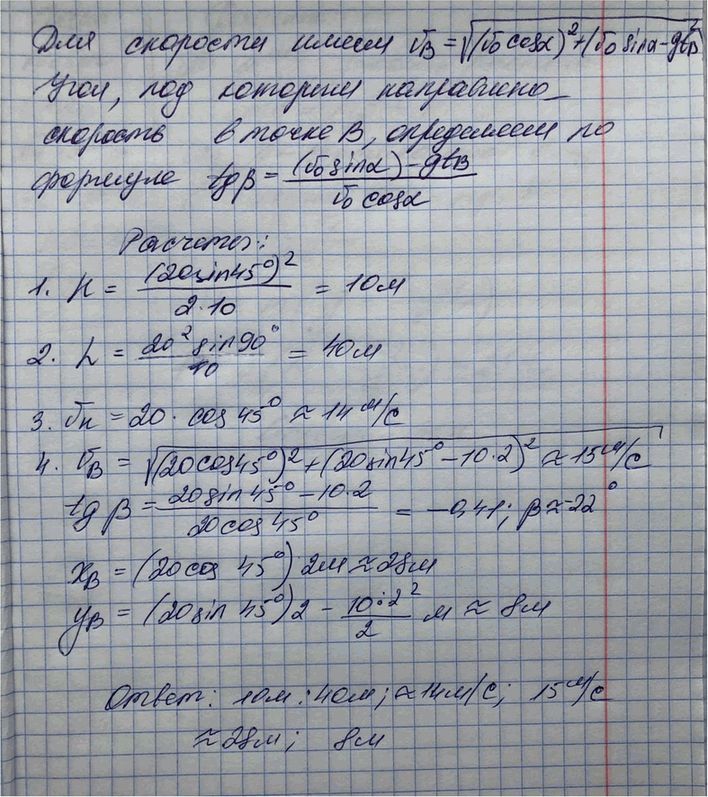 Для скорости имеем υ_B = √((υ₀ cosα)² + (υ₀ sinα - gt_B)²)
Угол, под которым направлена
скорость в точке B, определяем по
формуле tgβ = ((υ₀ sinα) - gt_B) / (υ₀ cosα)
Расчеты:
1. H = (20 sin45°)² / (2·10) = 10м
2. L = 20² sin90° / 10 = 40м
3. υ_н = 20 · cos 45° ≈ 14 м/с
4. υ_B = √((20cos45°)² + (20sin45° - 10·2)²) ≈ 15 м/с
tg β = (20sin45° - 10·2) / (20cos45°) = -0,41; β ≈ -22°
x_B = (20cos 45°) 2м ≈ 28м
y_B = (20sin 45°)2 - (10·2²) / 2 м ≈ 8м
Ответ: 10м; 40м; ≈14м/с; 15 м/с
≈28м; 8м